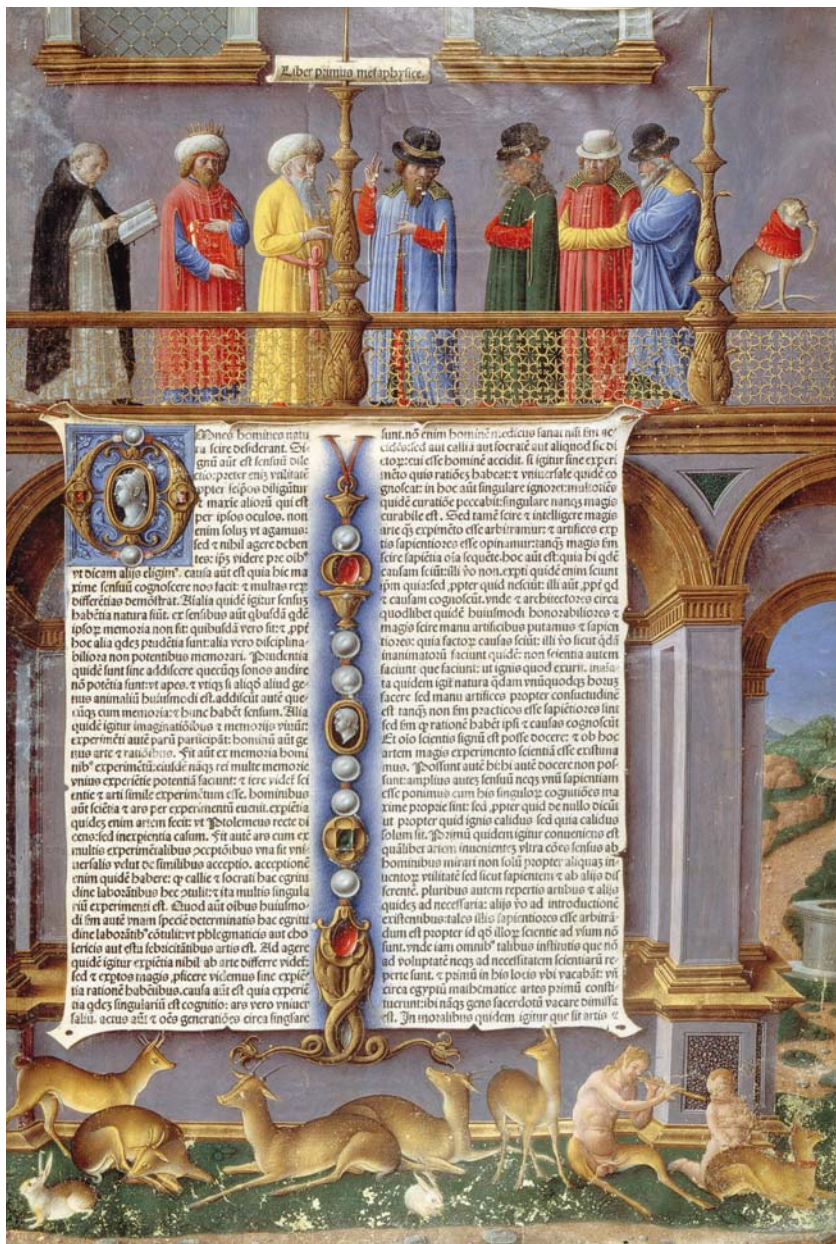 Liber primus metaphysice.
Omnes homines natu
ra scire desiderant. Si
gnũ aũt est sensuũ dile
ctio: preter eniz vtilitatẽ
ppter seipos diligũtur
⁊ maxie aliorũ qui est
per ipsos oculos. non
enim soluz vt agamus:
sed ⁊ nihil agere deben
tes: ip̃z videre pre oibꝰ
vt dicam alijs eligimꝰ. causa aũt est quia hic ma
xime sensuũ cognoscere nos facit: ⁊ multas reꝝ
differẽtias demõstrat. Aĩalia quidẽ igitur sensuz
habẽtia natura fiũt. ex sensibus aũt qbusdã qdẽ
ipsoꝝ memoria non fit: quibusdã vero fit: ⁊ ꝓpt̃
hoc alia qdez prudẽtia sunt: alia vero disciplina
biliora non potentibus memorari. Prudentia
quidẽ sunt sine addiscere quecũqz sonos audire
nõ potẽtia sunt: vt apes. ⁊ vtiqz si aliqđ aliud ge-
nus animaliũ huiusmodi est. addiscũt autẽ que-
cũqz cum memoria: ⁊ hunc habẽt sensum. Alia
quidẽ igitur imaginatiõibus ⁊ memorijs viuũt:
experimẽti autẽ parũ participãt: hominũ aũt ge
nus arte ⁊ ratiõibus. Fit aũt ex memoria homi
nibꝰ experimẽtũ: eiusdẽ nãqz rei multe memorie
vnius experiẽtie potentiã faciunt: ⁊ fere videt̃ sci
entie ⁊ arti simile experimẽtum esse. hominibus
aũt sciẽtia ⁊ ars per experimentũ euenit. expiẽtia
quidez enim artem fecit: vt Ptolemeus recte di
cens: sed inexpientia casum. Fit autẽ ars cum ex
multis experimẽtalibus ꝯceptiõibus vna fit vni-
uersalis velut de similibus acceptio. acceptionẽ
enim quidẽ habere: ꝙ callie ⁊ socrati hac egritu
dine laborãtibus hec ꝯtulit: ⁊ ita multis singula
riũ experimenti est. Quod aũt oibus huiusmo-
di ẽm autẽ vnam speciẽ determinatis hac egritu
dine laborãtibꝰ cõtulit: vt phlegmaticis aut cho
lericis aut estu febricitãtibus artis est. Ad agere
quidẽ igitur expiẽtia nihil ab arte differre videt̃:
sed ⁊ exptos magis ꝓficere videmus sine expiẽ-
tia rationẽ habẽtibus. causa aũt est quia experiẽ
tia qdez singulariũ est cognitio: ars vero vniuer
saliũ. actus aũt ⁊ oẽs generatiões circa singlare
sunt. nõ enim hominẽ medicus sanat nisi ẽm ac
cidẽs: sed aut calliã aut socratẽ aut aliquod sic di
ctoꝝ: cui esse hominẽ accidit. si igitur sine experi
mẽto quis ratiõez habeat: ⁊ vniuersale quidẽ co
gnoscat: in hoc aũt singulare ignoret: multotiẽs
quidẽ curatiõe peccabit: singulare namqz magis
curabile est. Sed tamẽ scire ⁊ intelligere magis
arte q̃z expimẽto esse arbitramur: ⁊ artifices exp
tis sapientiores esse opinamur: tanqz magis ẽm
scire sapiẽtia oĩa sequẽte. hoc aũt est: quia hi qdẽ
causam sciũt: illi vo non. expti quidẽ enim sciunt
ipm quia: sed ꝓpter quid nesciũt: illi aũt ꝓpt̃ qđ
⁊ causam cognoscũt. vnde ⁊ architectores circa
quodlibet quidẽ huiusmodi honorabiliores ⁊
magis scire manu artificibus putamus ⁊ sapien
tiores: quia factoꝝ causas sciũt: illi vo sicut qdã
inanimatorũ faciunt quidẽ: non scientia autem
faciunt que faciunt: ut ignis quod exurit. inaĩa-
ta quidem igit̃ natura qdam vnũquodqz horuz
facere sed manu artifices propter consuetudinẽ
est tanqz non ẽm practicos esse sapiẽtiores sint
sed ẽm ꝙ rationẽ habẽt ipsi ⁊ causas cognoscũt
Et oĩo scientis signũ est posse docere: ⁊ ob hoc
artem magis experimento scientiã esse existima
mus. Possunt autẽ hi: hi autẽ docere non pos-
sunt: amplius autez sensuũ neqz vnũ sapientiam
esse ponimus cum his singuloꝝ cognitiões ma
xime proprie sint: sed ꝓpter quid de nullo dicũt
ut propter quid ignis calidus sed quia calidus
solum sit. Primũ quidem igitur conueniens est
quãlibet artem inuenientez vltra cões sensus ab
hominibus mirari non solũ propter aliquaz in-
uentoꝝ vtilitatẽ sed sicut sapientem ⁊ ab alijs dif
ferentẽ. pluribus autem repertis artibus ⁊ alijs
quidez ad necessaria: alijs vo ad introductionẽ
existentibus: tales illis sapientiores esse arbitrã-
dum est propter id qđ illoꝝ scientie ad vsum nõ
sunt. vnde iam omnibꝰ talibus institutis que nõ
ad voluptatẽ neqz ad necessitatem scientiarũ re
perte sunt. ⁊ primũ in his locis vbi vacabãt: vñ
circa egyptũ mathematice artes primũ consti-
tuerunt: ibi nãqz gens sacerdotũ vacare dimissa
est. In moralibus quidem igitur que sit artis ⁊